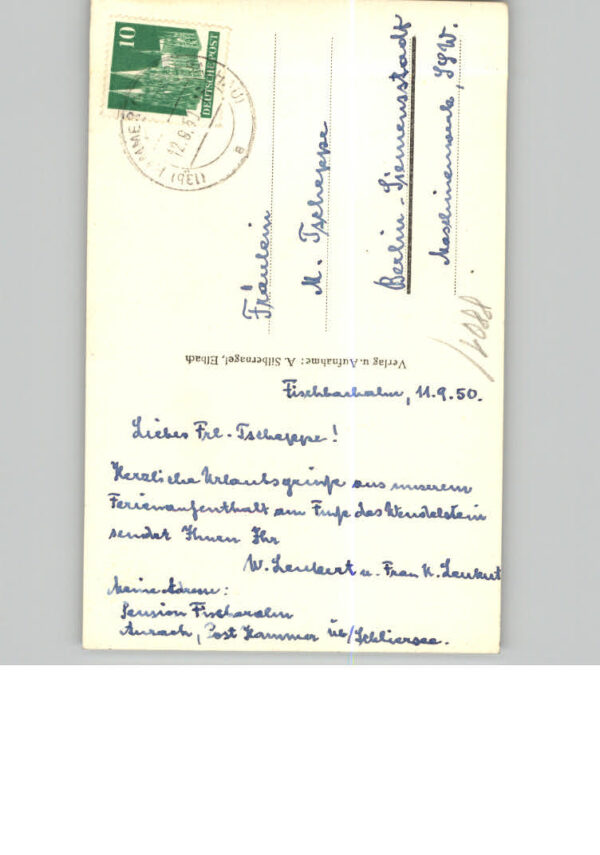 10
DEUTSCHE POST
(13b)
Fräulein
M. Tscheppe
Berlin-Siemensstadt
Verlag u. Aufnahme: A. Silbernagel, Elbach
Fischbachalm, 11.9.50.
Liebes Frl. Tscheppe!
Herzliche Urlaubsgrüße aus unserem
Ferienaufenthalt am Fuße des Wendelstein
sendet Ihnen Ihr
W. Leukert u. Frau K. Leukert
Meine Adresse:
Pension
Aurach, Post Hammer üb/Schliersee.